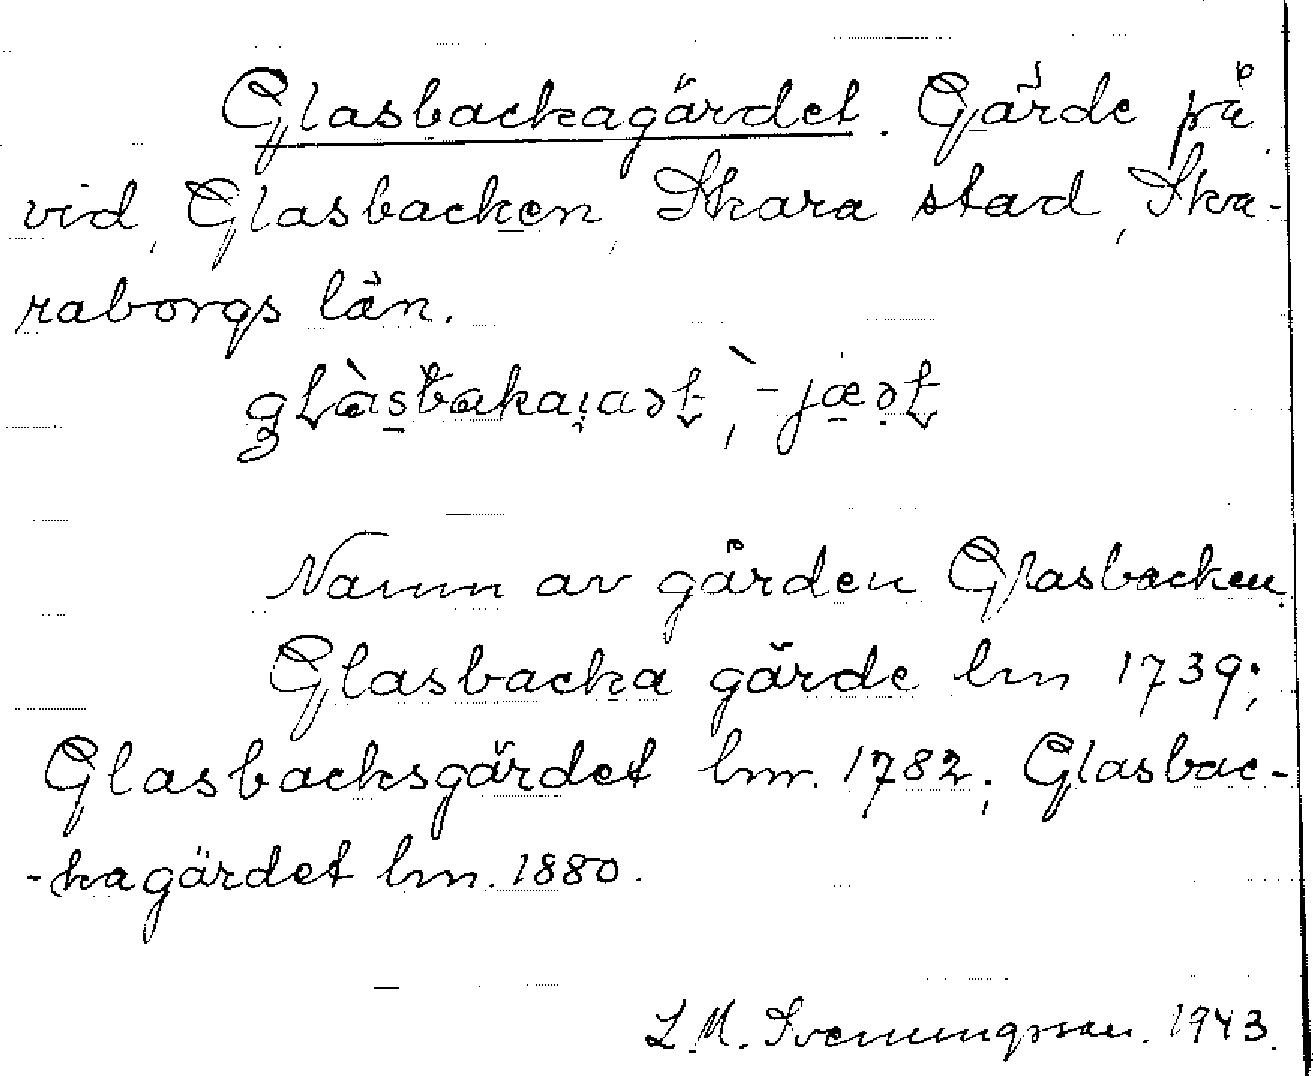 Glasbackagärdet. Gärde på
vid, Glasbacken, Skara stad, Ska-
raborgs län.
Namn av gården Glasbacken.
Glasbacka gärde lm 1739;
Glasbacksgärdet lm. 1782; Glasbac-
-kagärdet lm. 1880.
L.M. Svenungsson. 1943.